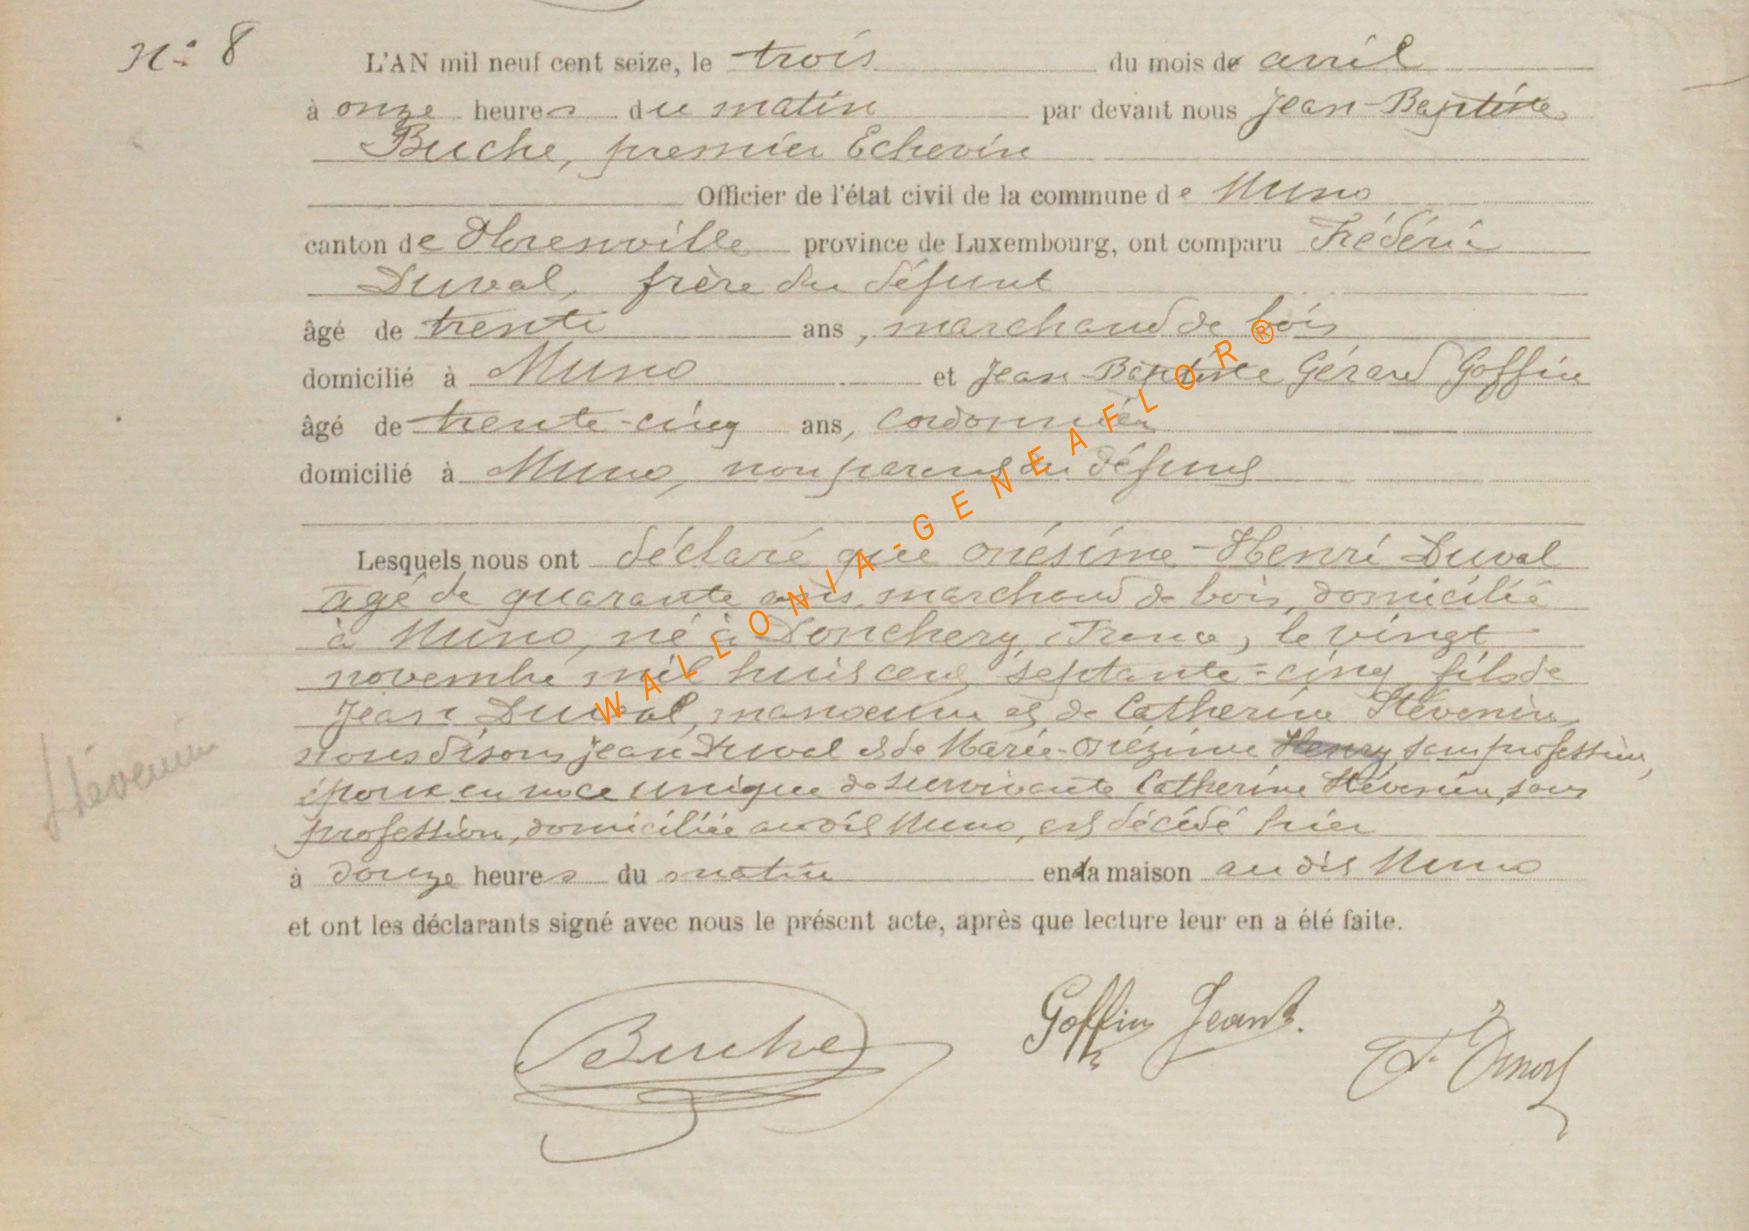 N° 8
L'AN mil neuf cent seize, le trois du mois de avril
à onze heures du matin par devant nous Jean-Baptiste
Buche, premier Echevin
Officier de l'état civil de la commune de Muno
canton de Florenville province de Luxembourg, ont comparu Frédéric
Duval, frère du défunt
âgé de trente ans, marchand de bois
domicilié à Muno et Jean-Baptiste Gérard Goffin
âgé de trente-cinq ans, cordonnier
domicilié à Muno, non parent du défunt
Lesquels nous ont déclaré que Onésime-Henri Duval
âgé de quarante ans, marchand de bois, domicilié
à Muno, né à Donchery, France, le vingt
novembre mil huit cent septante-cinq, fils de
Jean Duval, manoeuvre et de Catherine Stévenin,
nous disons Jean Duval et de Marie-Onézime Henry, sans profession,
époux en noce unique de survivante Catherine Stévenin, sans
profession, domiciliée audit Muno, est décédé hier
à douze heures du matin en la maison au dit Muno
et ont les déclarants signé avec nous le présent acte, après que lecture leur en a été faite.
Stévenin
Buche
Goffin Jean B.
F. Duval
WALLONIA-GENEAFLOR®